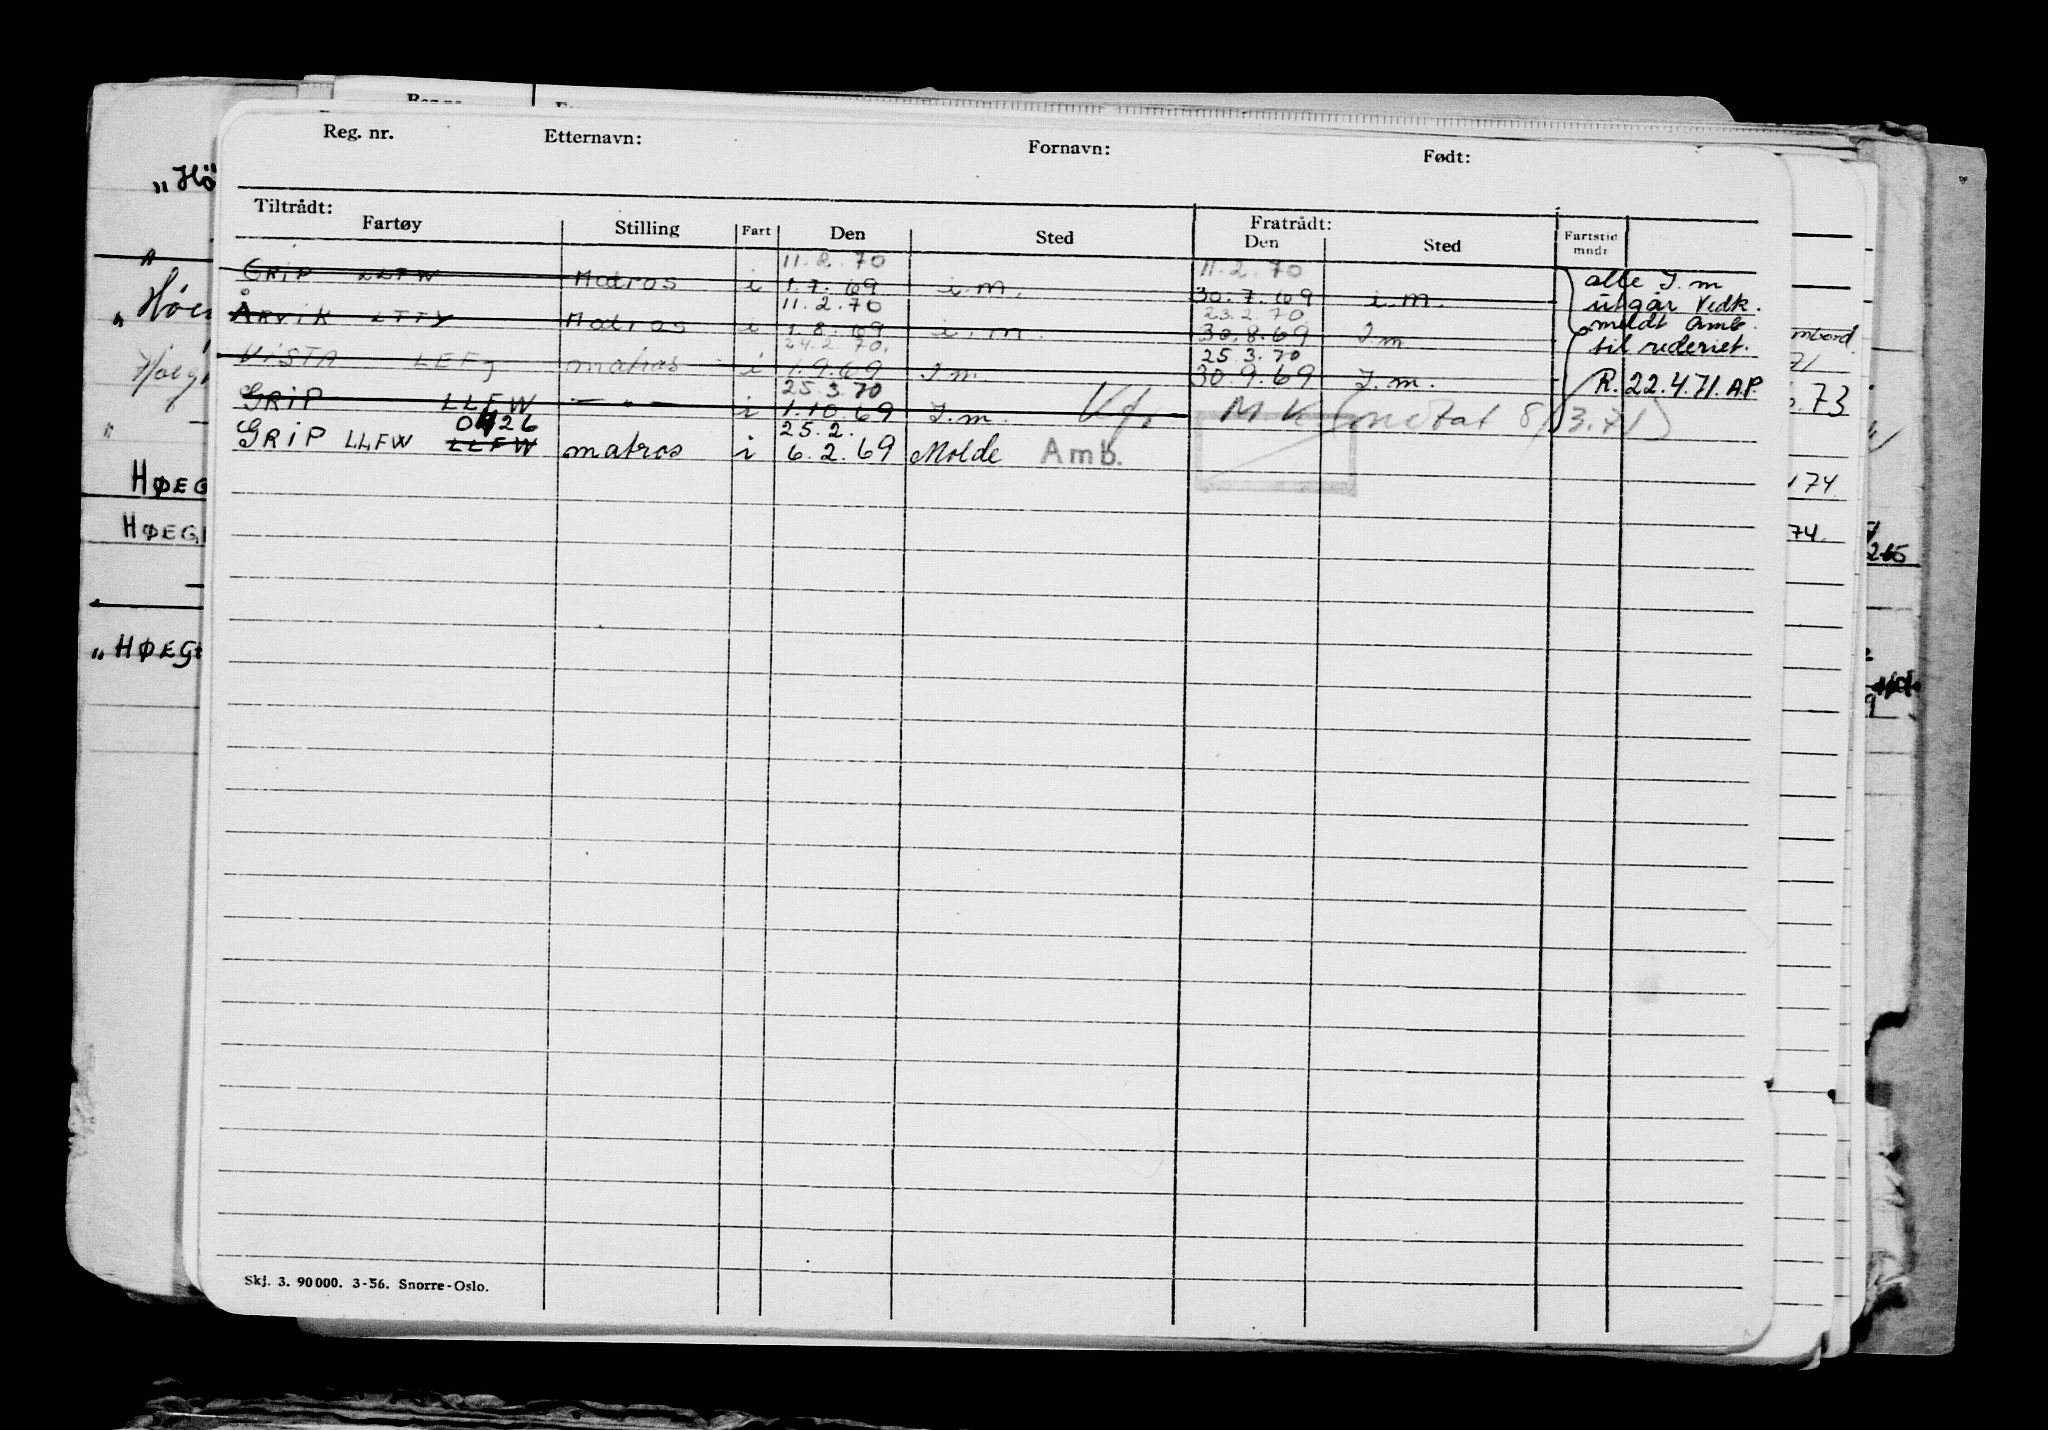 Reg. nr. Etternavn: Fornavn: Født:
Tiltrådt: Fratrådt:
Fartøy Stilling Fart Den Sted Den Sted Fartstid mndr
11.2.70 11.2.70
GRIP LLFW Matros i 1.7.69 i.m. 30.7.69 i.m. alle I.m
11.2.70 23.2.70 utgår Vedk.
ÅRVIK LTTY Matros i 1.8.69 i.m. 30.8.69 I.m meldt Amb.
24.2.70. 25.3.70 til rederiet.
VISTA LEFJ matros i 1.9.69 I m. 30.9.69 I.m. R. 22.4.71. A.P.
25.3.70
GRIP LLFW — " — i 1.10.69 I.m. MK (notat 8/3.71)
0426 25.2.
GRIP LLFW LLFW matros i 6.2.69 Molde Amb.
Skj. 3. 90000. 3-56. Snorre-Oslo.
„Hö
„Høe
Høeg
HØEG
HØEG
„HØEG
71
.73
174.
74.
265